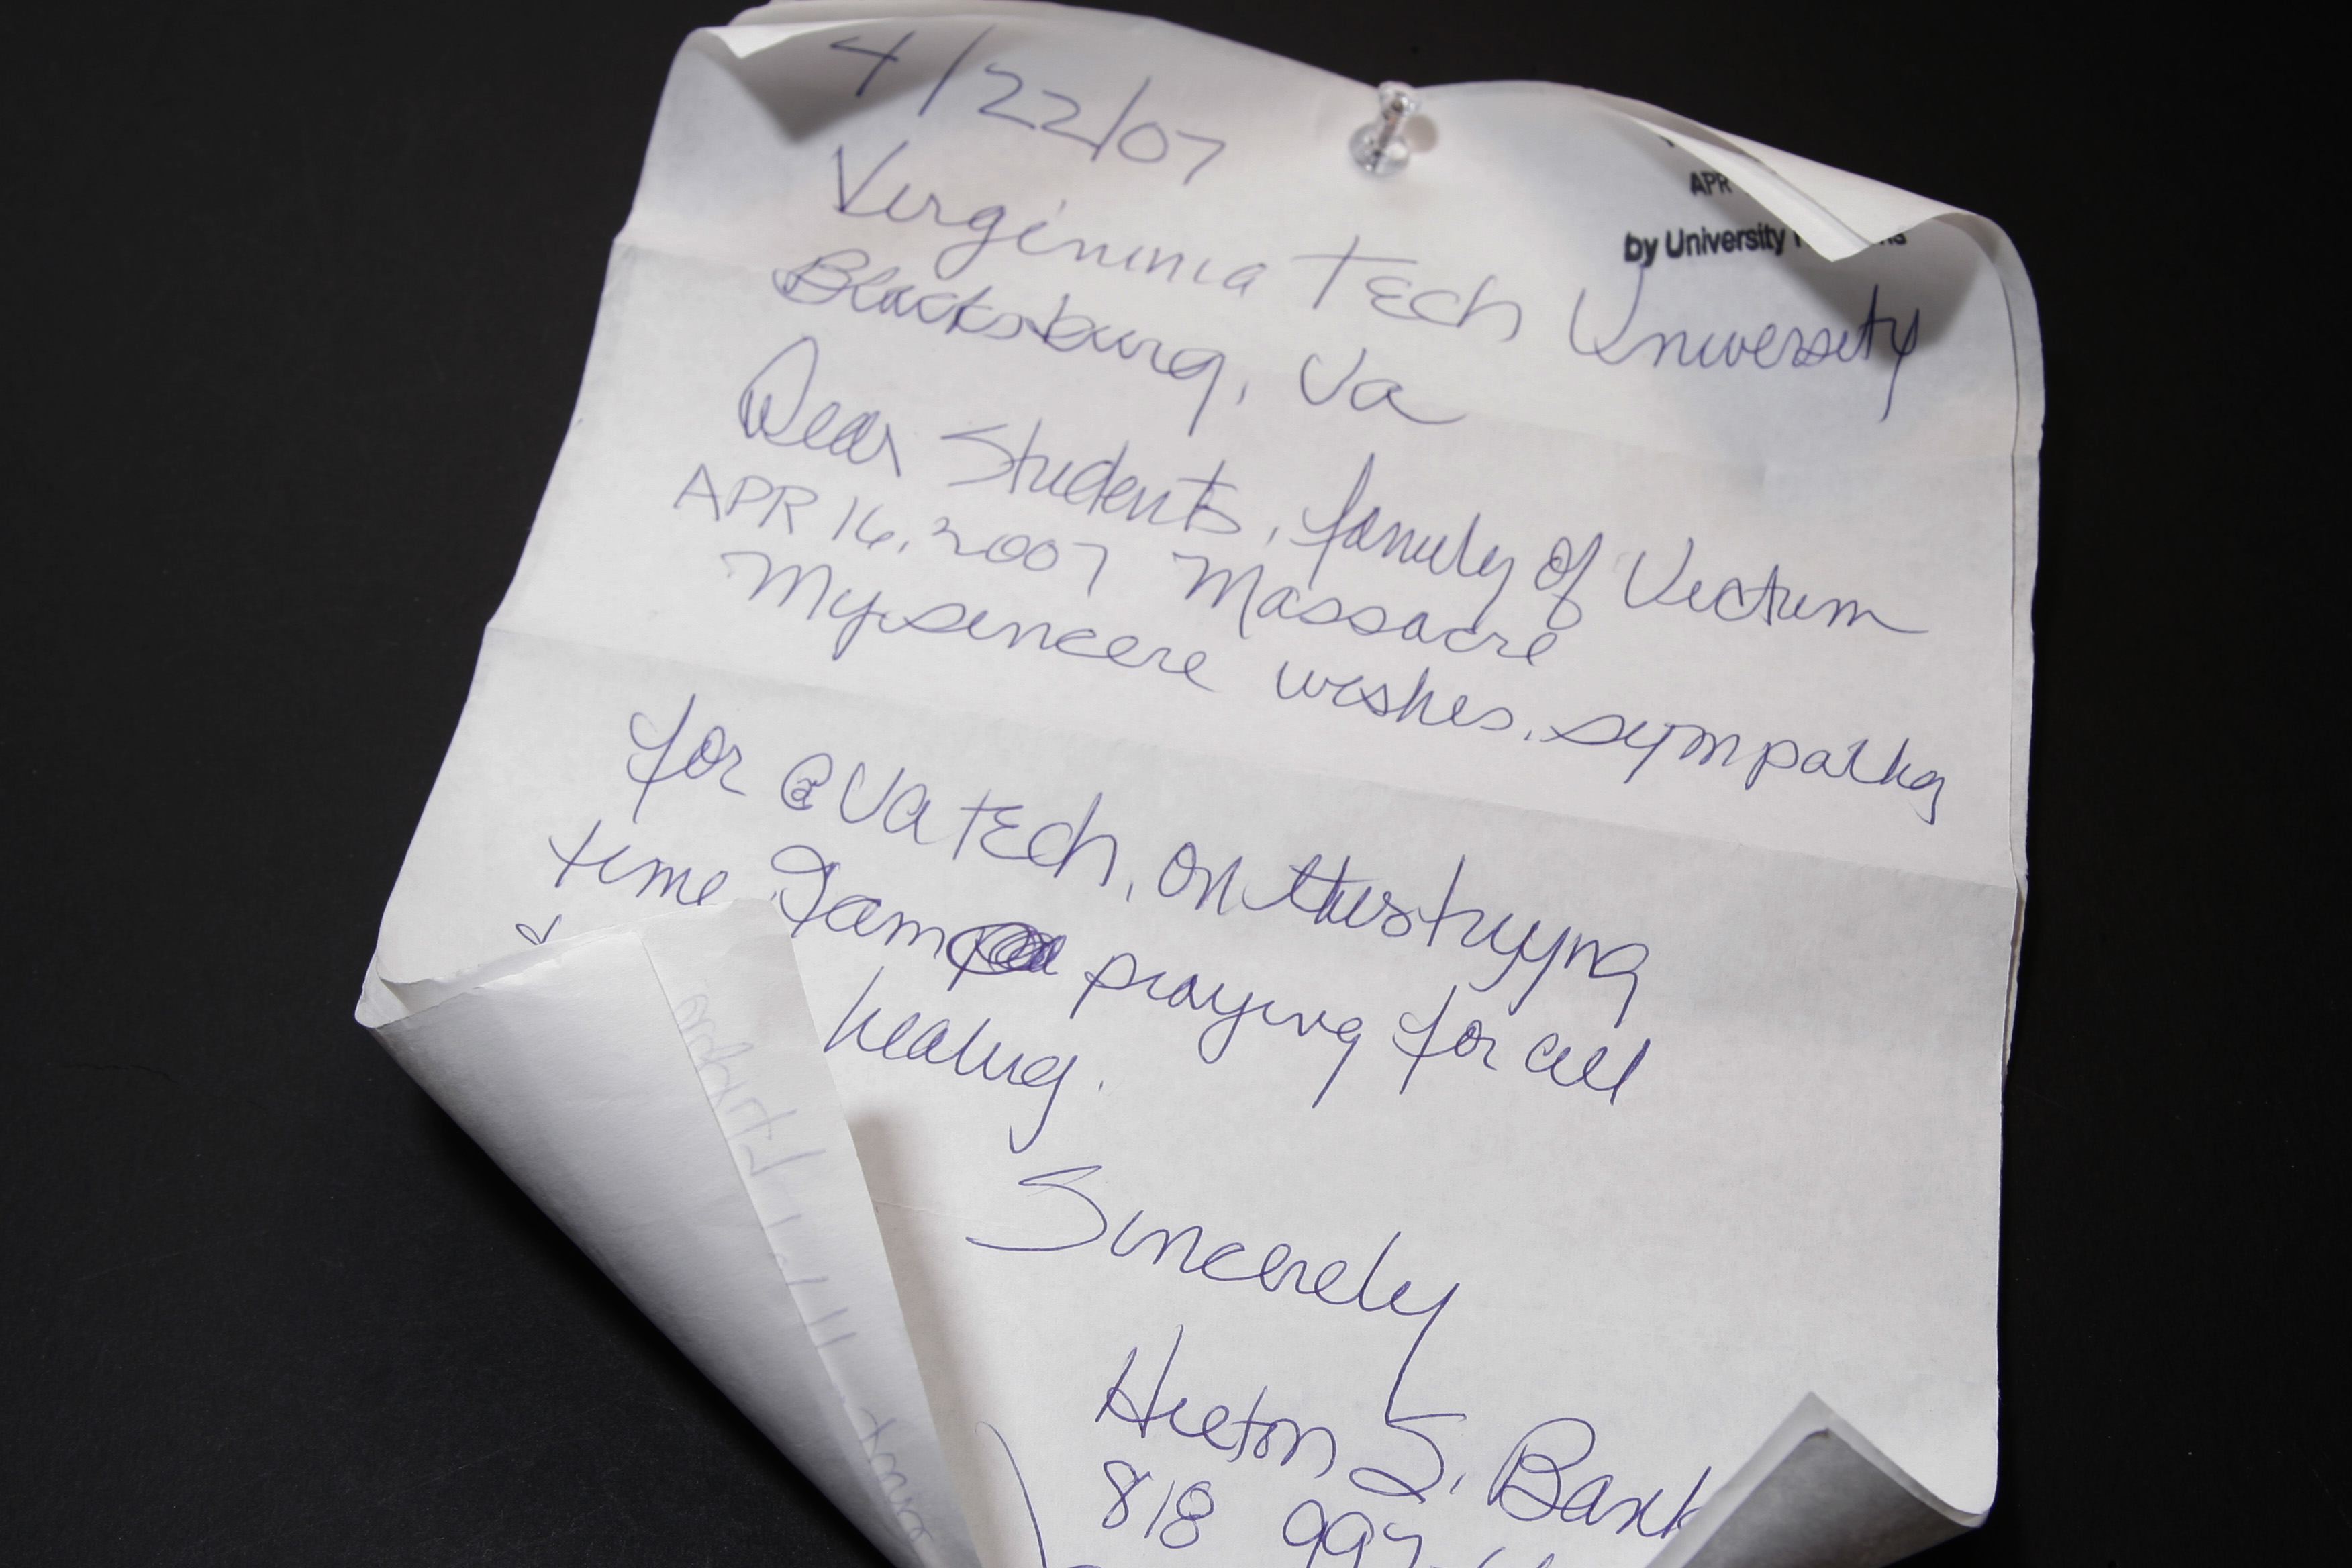 4/22/07
APR
by University
Virgininia Tech University
Blacksburg, Va
Dear Students, family of Victim
APR 16, 2007 Massacre
My sincere wishes, sympathy
for @ Va Tech, on this tryyng
time I am praying for all
healing.
Sincerely
Hilton S.
818 997